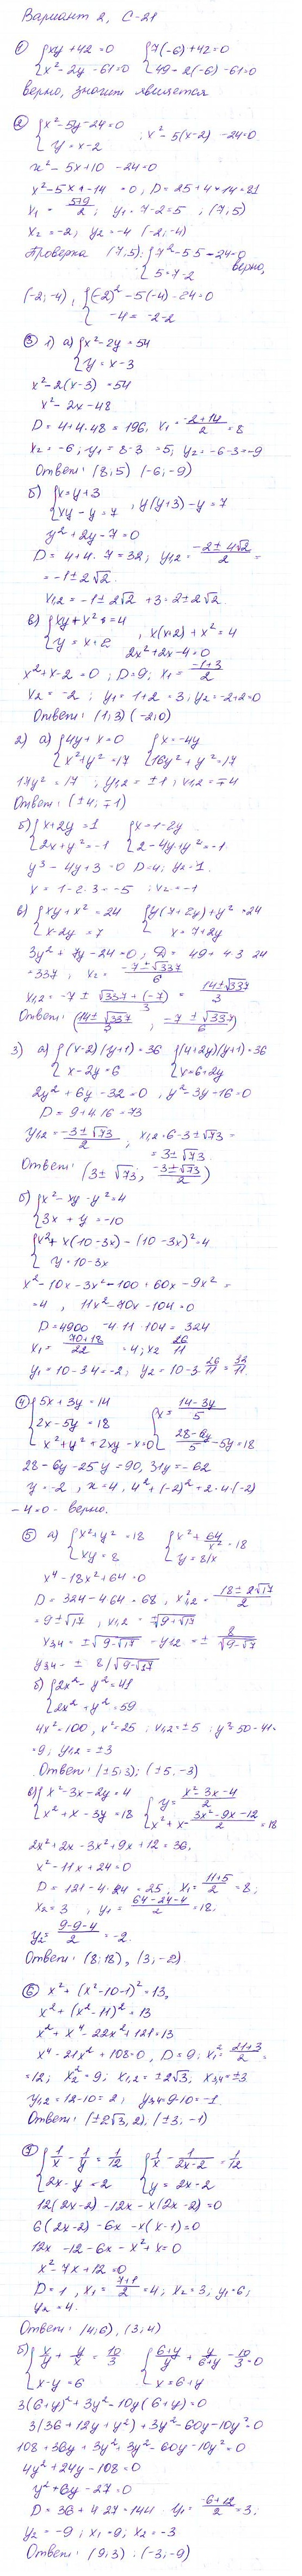 Вариант 2, С-21
① { xy + 42 = 0 { 7(-6) + 42 = 0
{ x² - 2y - 61 = 0 { 49 - 2(-6) - 61 = 0
верно, значит является
② { x² - 5y - 24 = 0 ; x² - 5(x-2) - 24 = 0
{ y = x - 2
x² - 5x + 10 - 24 = 0
x² - 5x - 14 = 0, D = 25 + 4·14 = 81
x₁ = (5+9)/2 ; y₁ = 7-2 = 5 , (7; 5)
x₂ = -2; y₂ = -4 (-2; -4)
Проверка (7; 5): { 7² - 5·5 - 24 = 0
{ 5 = 7-2 верно,
(-2; -4), { (-2)² - 5(-4) - 24 = 0
{ -4 = -2-2
③ 1) а) { x² - 2y = 54
{ y = x - 3
x² - 2(x-3) = 54
x² - 2x - 48
D = 4 + 4·48 = 196, x₁ = (-2+14)/2 = 8
x₂ = -6; y₁ = 8-3 = 5, y₂ = -6-3 = -9
Ответ: (8; 5) (-6; -9)
б) { x = y + 3
{ xy - y = 7 , y(y+3) - y = 7
y² + 2y - 7 = 0
D = 4 + 4·7 = 32; y₁,₂ = (-2 ± 4√2)/2 =
= -1 ± 2√2
x₁,₂ = -1 ± 2√2 + 3 = 2 ± 2√2
в) { xy + x² = 4
{ y = x + 2 , x(x+2) + x² = 4
2x² + 2x - 4 = 0
x² + x - 2 = 0 ; D = 9; x₁ = (-1+3)/2
x₂ = -2 ; y₁ = 1+2 = 3; y₂ = -2+2 = 0
Ответ: (1; 3) (-2; 0)
2) а) { 4y + x = 0 { x = -4y
{ x² + y² = 17 { 16y² + y² = 17
17y² = 17 ; y₁,₂ = ±1 ; x₁,₂ = ∓4
Ответ: (±4; ∓1)
б) { x + 2y = 1 { x = 1-2y
{ 2x + y² = -1 { 2 - 4y + y² = -1
y² - 4y + 3 = 0 D = 4; y₂ = 1
x = 1 - 2·3 = -5 ; x₂ = -1
в) { xy + x² = 24 { y(7+2y) + y² = 24
{ x - 2y = 7 { x = 7 + 2y
3y² + 7y - 24 = 0 ; D = 49 + 4·3·24
= 337 , x₂ = (-7 ± √337)/6
x₁,₂ = -7 ± (√337 + (-7))/3 = (14 ± √337)/3
Ответ: ((14 ± √337)/3 ; (-7 ± √337)/6)
3) а) { (x-2)(y+1) = 36 { (4+2y)(y+1) = 36
{ x - 2y = 6 { x = 6 + 2y
2y² + 6y - 32 = 0 , y² - 3y - 16 = 0
D = 9 + 4·16 = 73
y₁,₂ = (-3 ± √73)/2 , x₁,₂ = 6 - 3 ± √73 =
= 3 ± √73
Ответ: (3 ± √73; (-3 ± √73)/2)
б) { x² - xy - y² = 4
{ 3x + y = -10
{ x² + x(10-3x) - (10-3x)² = 4
{ y = 10-3x
x² - 10x - 3x² - 100 + 60x - 9x² =
= 4 , 11x² - 70x - 104 = 0
D = 4900 - 4·11·104 = 324
x₁ = (70+18)/22 = 4; x₂ 26/11
y₁ = 10 - 3·4 = -2; y₂ = 10 - 3·26/11 = 32/11
④ { 5x + 3y = 14 { x = (14-3y)/5
{ 2x - 5y = 18
{ x² + y² + 2xy - x = 0 { (28-6y)/5 - 5y = 18
28 - 6y - 25y = 90, 31y = -62
y = -2 , x = 4, 4² + (-2)² + 2·4·(-2)
- 4 = 0 - верно.
⑤ а) { x² + y² = 18 { x² + 64/x² = 18
{ xy = 8 { y = 8/x
x⁴ - 18x² + 64 = 0
D = 324 - 4·64 = 68 , x²₁,₂ = (18 ± 2√17)/2
= 9 ± √17 , x₁,₂ = ±√(9+√17)
x₃,₄ = ±√(9-√17) - y₁,₂ = ± 8/√(9-√17)
y₃,₄ = ± 8/√(9-√17)
б) { 2x² - y² = 41
{ 2x² + y² = 59
4x² = 100 , x² = 25 ; x₁,₂ = ±5 ; y² = 50 - 41 =
= 9; y₁,₂ = ±3
Ответ: (±5; 3); (±5, -3)
в) { x² - 3x - 2y = 4 { y = (x² - 3x - 4)/2
{ x² + x - 3y = 18 { x² + x - (3x² - 9x - 12)/2 = 18
2x² + 2x - 3x² + 9x + 12 = 36,
x² - 11x + 24 = 0
D = 121 - 4·24 = 25, x₁ = (11+5)/2 = 8;
x₂ = 3 , y₁ = (64-24-4)/2 = 18,
y₂ = (9-9-4)/2 = -2
Ответ: (8; 18), (3; -2)
⑥ x² + (x² - 10 - 1)² = 13,
x² + (x² - 11)² = 13
x² + x⁴ - 22x² + 121 = 13
x⁴ - 21x² + 108 = 0, D = 9; x₁² = (21+3)/2 =
= 12; x₂² = 9; x₁,₂ = ±2√3; x₃,₄ = ±3
y₁,₂ = 12 - 10 = 2; y₃,₄ = 9 - 10 = -1
Ответ: (±2√3, 2), (±3; -1)
⑦ { 1/x - 1/y = 1/12 { 1/x - 1/(2x-2) = 1/12
{ 2x - y = 2 { y = 2x - 2
12(2x-2) - 12x - x(2x-2) = 0
6(2x-2) - 6x - x(x-1) = 0
12x - 12 - 6x - x² + x = 0
x² - 7x + 12 = 0
D = 1 , x₁ = (7+1)/2 = 4; x₂ = 3; y₁ = 6;
y₂ = 4.
Ответ: (4; 6), (3; 4)
б) { x/y + y/x = 10/3 { (6+y)/y + y/(6+y) - 10/3 = 0
{ x - y = 6 { x = 6 + y
3(6+y)² + 3y² - 10y(6+y) = 0
3(36 + 12y + y²) + 3y² - 60y - 10y² = 0
108 + 36y + 3y² + 3y² - 60y - 10y² = 0
4y² + 24y - 108 = 0
y² + 6y - 27 = 0
D = 36 + 4·27 = 144 y₁ = (-6+12)/2 = 3;
y₂ = -9 ; x₁ = 9; x₂ = -3
Ответ: (9; 3) ; (-3; -9)